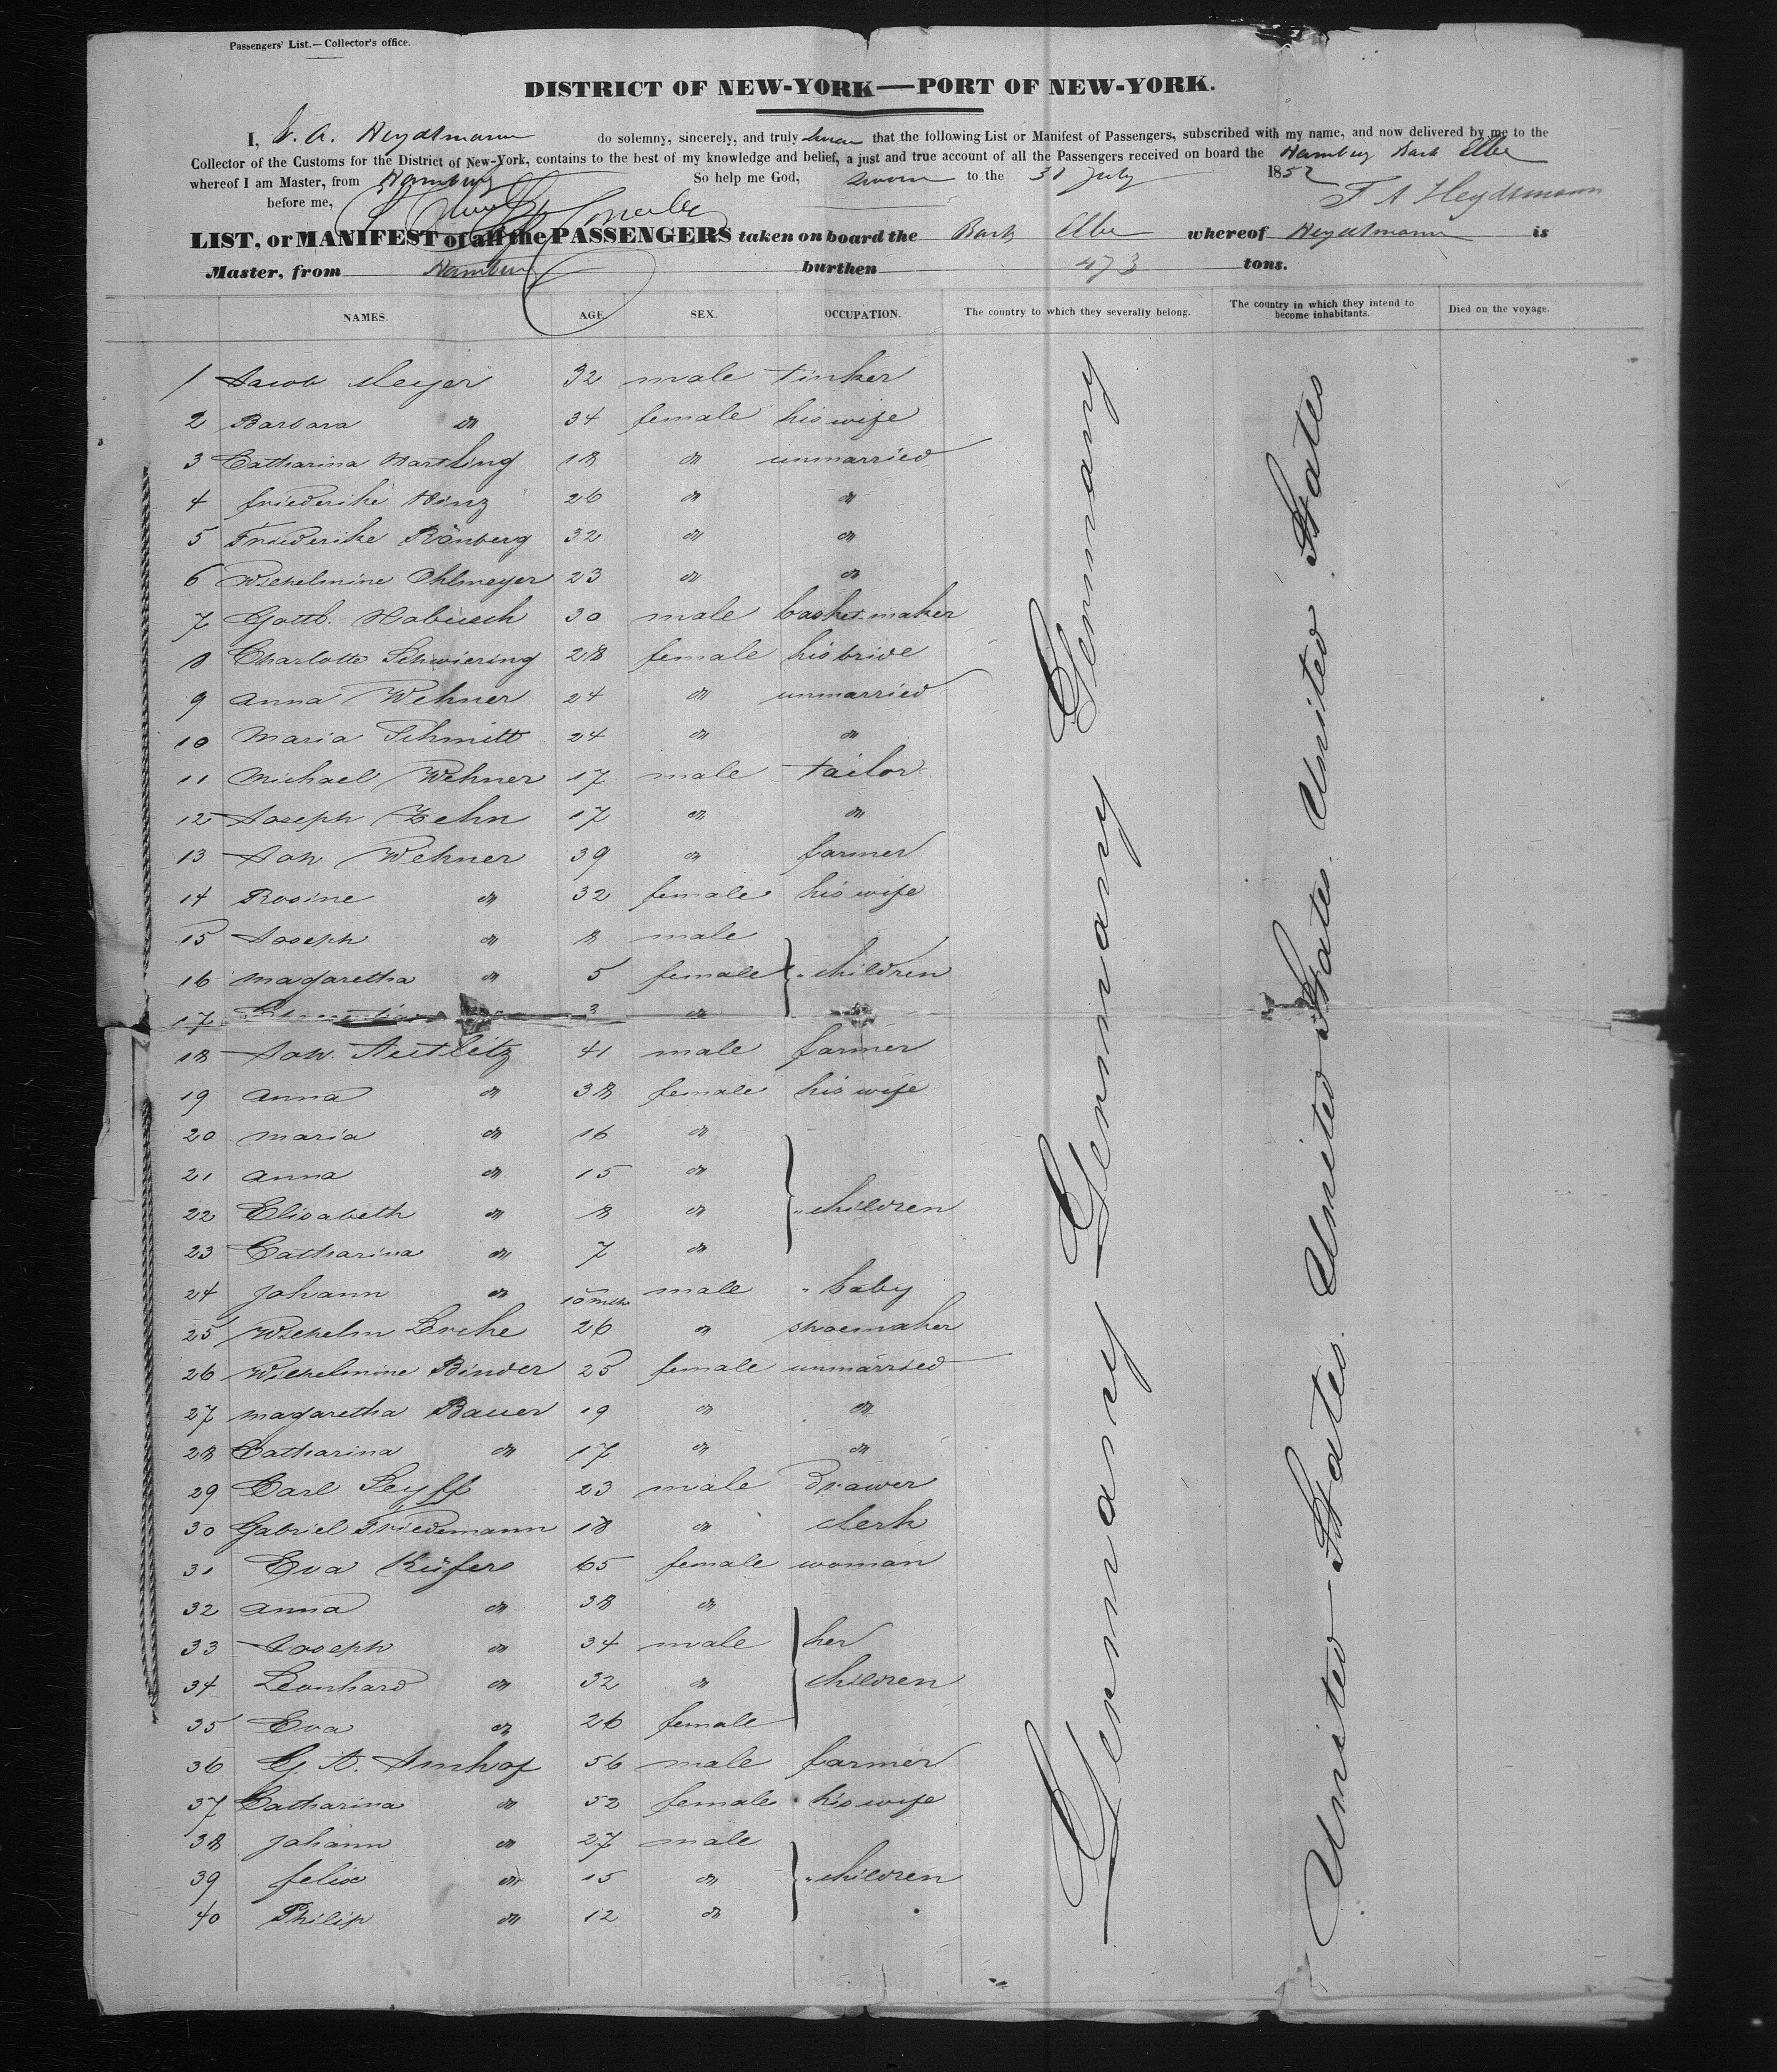 Passengers' List.—Collector's office.
DISTRICT OF NEW-YORK—PORT OF NEW-YORK.
I, Heydtmann do solemny, sincerely, and truly swear that the following List or Manifest of Passengers, subscribed with my name, and now delivered by me to the
Collector of the Customs for the District of New-York, contains to the best of my knowledge and belief, a just and true account of all the Passengers received on board the Hamburg Bark Elbe
whereof I am Master, from Hamburg So help me God, sworn to the 31 July 1852
before me, F A Heydtmann
LIST, or MANIFEST of all the PASSENGERS taken on board the Bark Elbe whereof Heydtmann is
Master, from Hamburg burthen 473 tons.
NAMES. AGE. SEX. OCCUPATION. The country to which they severally belong. The country in which they intend to become inhabitants. Died on the voyage.
1 Jacob Meyer 32 male tinker
2 Barbara do 34 female his wife
3 Catharina Hartling 18 do unmarried
4 friederike Hinz 26 do do
5 Friederike Rönberg 32 do do
6 Wilhelmine Ohlmeyer 23 do do
7 Gottb. Habusch 30 male basket-maker
8 Charlotte Schwiering 28 female his bride
9 Anna Wehner 24 do unmarried
10 Maria Schmitt 24 do do
11 Michael Wehner 17 male tailor
12 Joseph Zehn 17 do do
13 Joh Wehner 39 do farmer
14 Rosine do 32 female his wife
15 Joseph do 8 male
16 Magaretha do 5 female children
17 3 do
18 Joh. Autlitz 41 male farmer
19 Anna do 38 female his wife
20 Maria do 16 do
21 Anna do 15 do
22 Elisabeth do 8 do children
23 Catharina do 7 do
24 Johann do 10 mths male baby
25 Wilhelm Lerche 26 do shoemaker
26 Wilhelmine Binder 25 female unmarried
27 Magaretha Bauer 19 do do
28 Catharina do 17 do do
29 Carl Seyff 23 male Drawer
30 Gabriel Friedemann 18 do clerk
31 Eva Küfers 65 female woman
32 Anna do 38 do
33 Joseph do 34 male her
34 Leonhard do 32 do children
35 Eva do 26 female
36 G. A. Imhof 56 male farmer
37 Catharina do 52 female his wife
38 Johann do 27 male
39 felix do 15 do children
40 Philip do 12 do
Germany Germany Germany Germany
United States United States United States United States